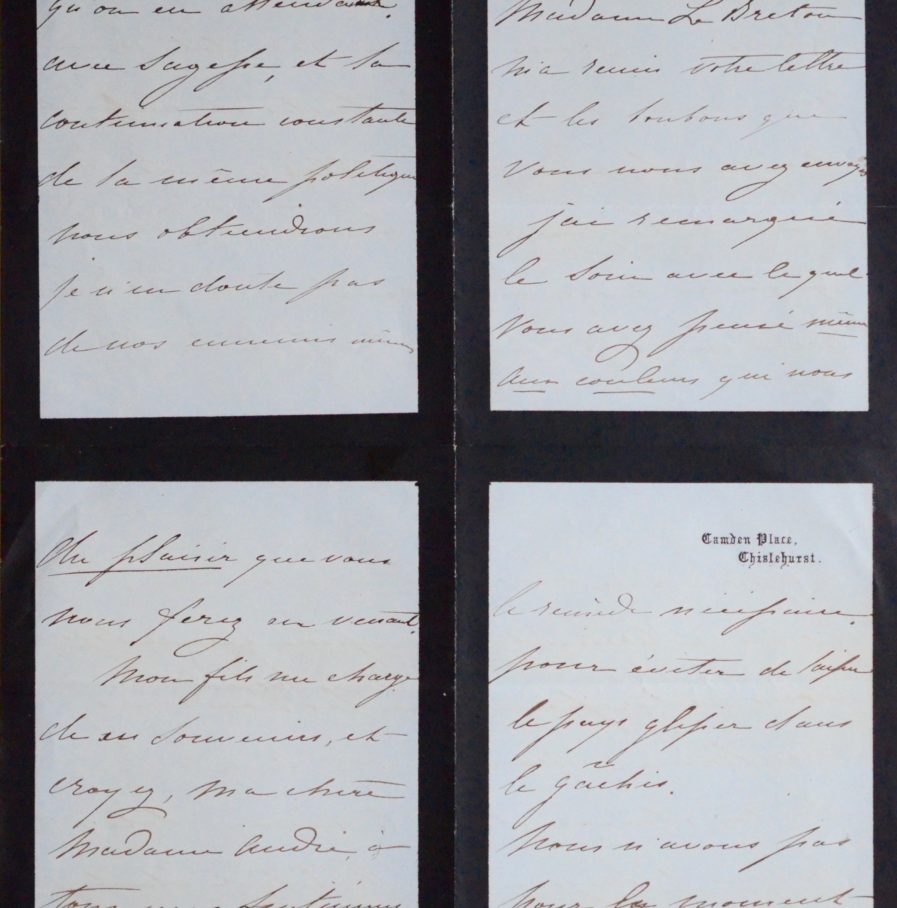 qu'on en attendant
avec sagesse, et la
continuation constante
de la même politique
nous obtiendrons
je n'en doute pas
de nos ennemis même
Madame Le Breton
m'a remis votre lettre
et les bonbons que
vous nous avez envoyés
j'ai remarqué
le soin avec lequel
vous avez pensé même
aux couleurs qui nous
du plaisir que vous
nous ferez en venant.
Mon fils me charge
de ses souvenirs, et
croyez, ma chère
Madame André, à
tous mes sentiments
Camden Place,
Chislehurst.
le remède nécessaire
pour éviter de laisser
le pays glisser dans
le gâchis.
Nous n'avons pas
pour le moment